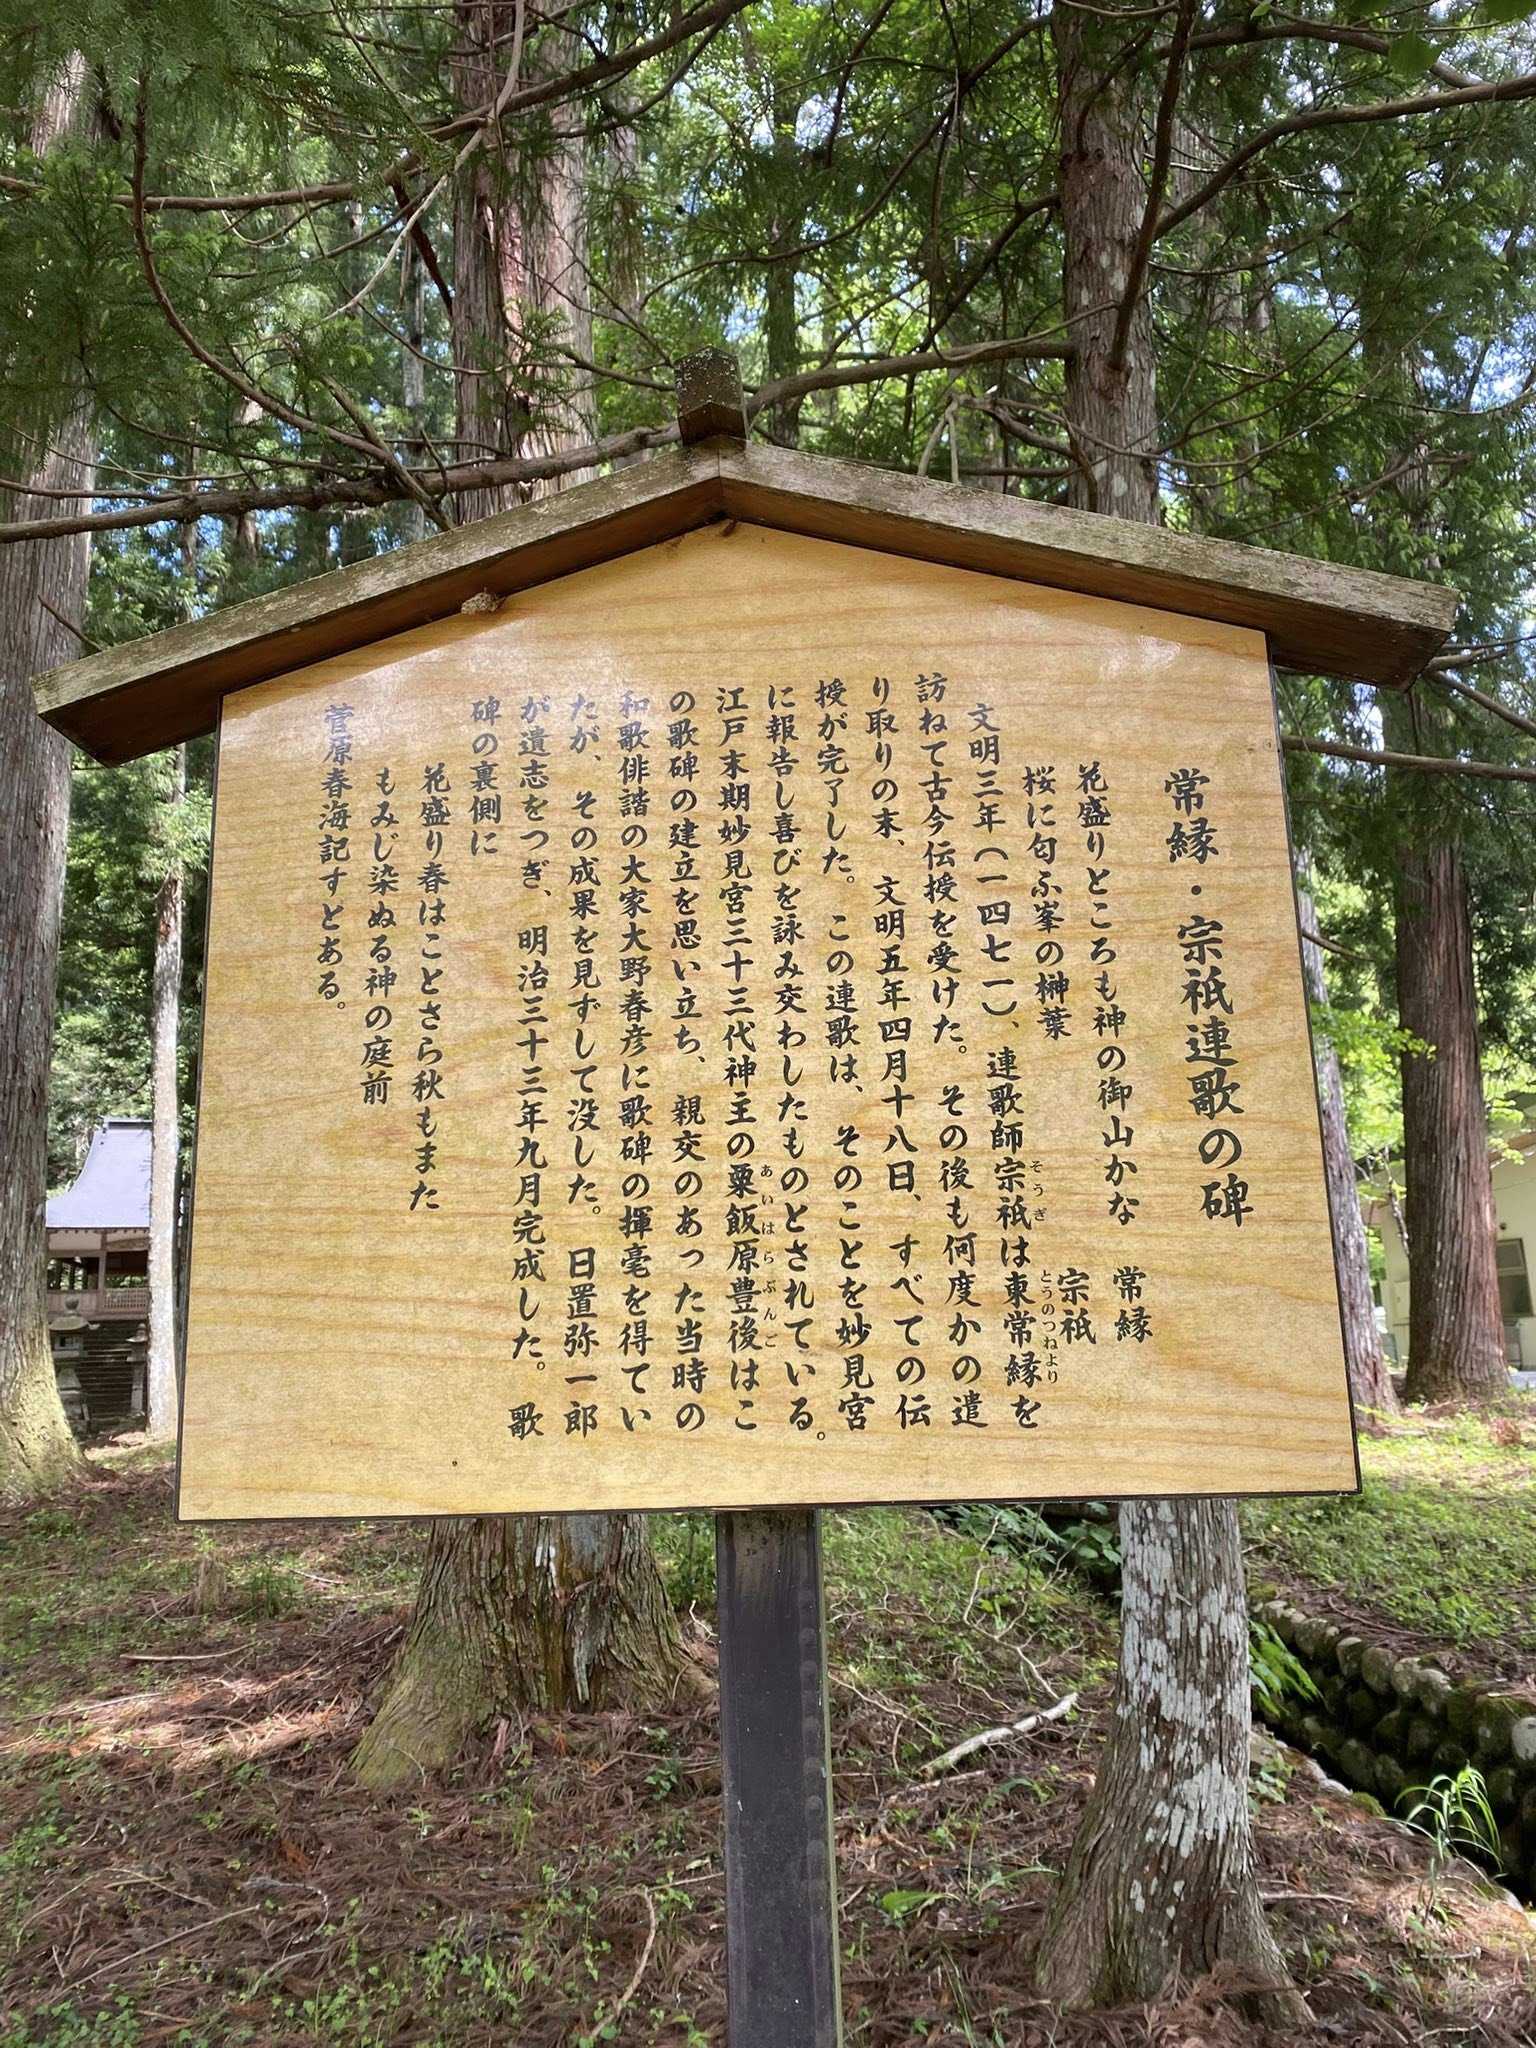 常縁・宗祇連歌の碑
花盛りところも神の御山かな　常縁
桜に匂ふ峯の榊葉　宗祇
文明三年（一四七一）、連歌師宗祇は東常縁を
そうぎ
とうのつねより
訪ねて古今伝授を受けた。その後も何度かの遣
り取りの末、文明五年四月十八日、すべての伝
授が完了した。この連歌は、そのことを妙見宮
に報告し喜びを詠み交わしたものとされている。
江戸末期妙見宮三十三代神主の粟飯原豊後はこ
あいはらぶんご
の歌碑の建立を思い立ち、親交のあった当時の
和歌俳諧の大家大野春彦に歌碑の揮毫を得てい
たが、その成果を見ずして没した。日置弥一郎
が遺志をつぎ、明治三十三年九月完成した。歌
碑の裏側に
花盛り春はことさら秋もまた
もみじ染ぬる神の庭前
菅原春海記すとある。